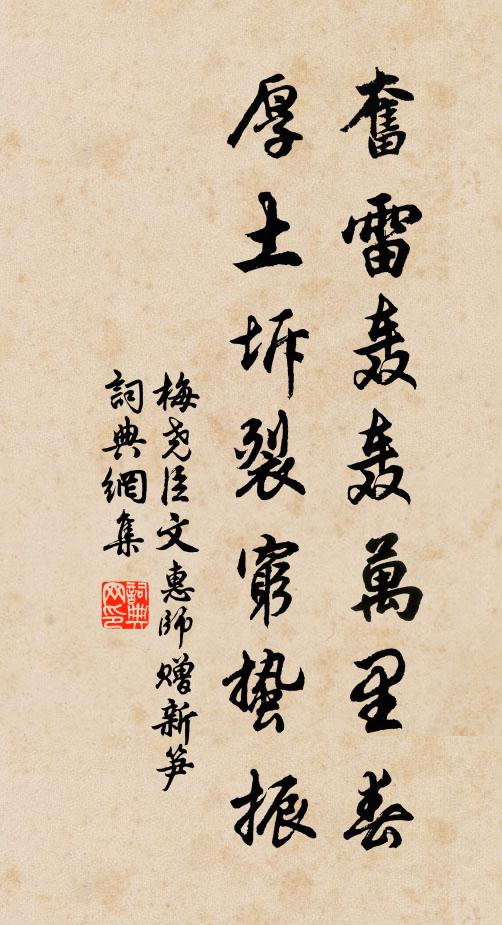 奮雷轰轰萬里春
厚土坼裂窮蟄振
梅尧臣文惠師赠新笋
詞典網集
詞典
网印